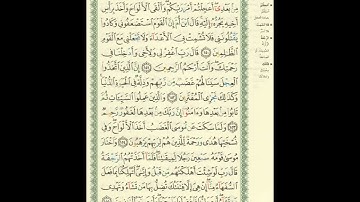 مِنۢ بَعْدِيٓ أَعَجِلْتُمْ أَمْرَ رَبِّكُمْ وَأَلْقَى ٱلْأَلْوَاحَ وَأَخَذَ بِرَأْسِ
أَخِيهِ يَجُرُّهُۥٓ إِلَيْهِ قَالَ ٱبْنَ أُمَّ إِنَّ ٱلْقَوْمَ ٱسْتَضْعَفُونِي وَكَادُوا۟
يَقْتُلُونَنِي فَلَا تُشْمِتْ بِيَ ٱلْأَعْدَآءَ وَلَا تَجْعَلْنِي مَعَ ٱلْقَوْمِ
ٱلظَّٰلِمِينَ ١٥٠ قَالَ رَبِّ ٱغْفِرْ لِي وَلِأَخِي وَأَدْخِلْنَا فِي
رَحْمَتِكَ وَأَنتَ أَرْحَمُ ٱلرَّٰحِمِينَ ١٥١ إِنَّ ٱلَّذِينَ ٱتَّخَذُوا۟
ٱلْعِجْلَ سَيَنَالُهُمْ غَضَبٌ مِّن رَّبِّهِمْ وَذِلَّةٌ فِي ٱلْحَيَوٰةِ ٱلدُّنْيَا
وَكَذَٰلِكَ نَجْزِي ٱلْمُفْتَرِينَ ١٥٢ وَٱلَّذِينَ عَمِلُوا۟ ٱلسَّيِّـَٔاتِ ثُمَّ
تَابُوا۟ مِنۢ بَعْدِهَا وَءَامَنُوٓا۟ إِنَّ رَبَّكَ مِنۢ بَعْدِهَا لَغَفُورٌ رَّحِيمٌ
١٥٣ وَلَمَّا سَكَتَ عَن مُّوسَى ٱلْغَضَبُ أَخَذَ ٱلْأَلْوَاحَ وَفِي
نُسْخَتِهَا هُدًى وَرَحْمَةٌ لِّلَّذِينَ هُمْ لِرَبِّهِمْ يَرْهَبُونَ ١٥٤ وَٱخْتَارَ
مُوسَىٰ قَوْمَهُۥ سَبْعِينَ رَجُلًا لِّمِيقَٰتِنَا فَلَمَّآ أَخَذَتْهُمُ ٱلرَّجْفَةُ
قَالَ رَبِّ لَوْ شِئْتَ أَهْلَكْتَهُم مِّن قَبْلُ وَإِيَّٰيَ أَتُهْلِكُنَا بِمَا فَعَلَ
ٱلسُّفَهَآءُ مِنَّآ إِنْ هِيَ إِلَّا فِتْنَتُكَ تُضِلُّ بِهَا مَن تَشَآءُ وَتَهْدِي